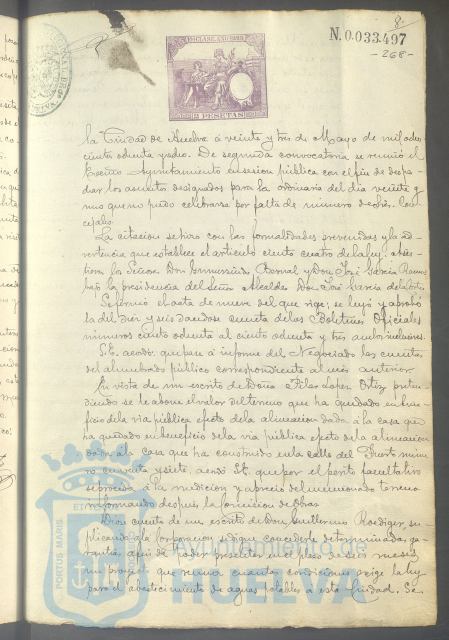 8
N. 0.033.497
-268-
CLASE AÑO 1882
2 PESETAS
la Ciudad de Huelva á veinte y tres de Mayo de mil ocho
cientos ochenta y dos. De segunda convocatoria se reunió el
Excmo Ayuntamiento en sesion pública con el fin de despa
char los asuntos designados para la ordinaria del dia veinte y
uno que no pudo celebrarse por falta de número de Con
cejales.
La citacion se hizo con las formalidades prevenidas y la ad
vertencia que establece el artículo ciento cuatro de la ley.
Don Bernal y Don José Garcia
bajo la presidencia del Señor Alcalde Don José Garcia
Se firmó el acta de nueve del que rige; se leyó y aprobó
la del diez y seis dandose cuenta de los Boletines Oficiales
números ciento ochenta al ciento ochenta y tres ambos inclusives.
S.E. acordó que pase á informe del Negociado las cuentas
del alumbrado público correspondiente al mes anterior.
En vista de un escrito de Doña Pilar Lopez Ortiz preten
diendo se le abone el valor del terreno que ha quedado en bene
ficio de la via pública efecto de la alineacion dada á la casa que
ha quedado en beneficio de la via pública efecto de la alineacion
dada á la casa que ha construido en la calle del Puerto núme
ro y siete, acordó S.E. que por el perito facultativo
se proceda á la medicion y aprecio del mencionado terreno
informando despues la comision de Obras.
Dióse cuenta de un escrito de Don Guillermo Roediger, su
plicando á la corporacion se digne concederle determinadas ga-
rantías, á fin de poder presentar en el plazo de seis meses,
un proyecto que reuna cuantas condiciones exige la ley
para el abastecimiento de aguas potables á esta Ciudad. Se
PORTUS MARIS
HUELVA